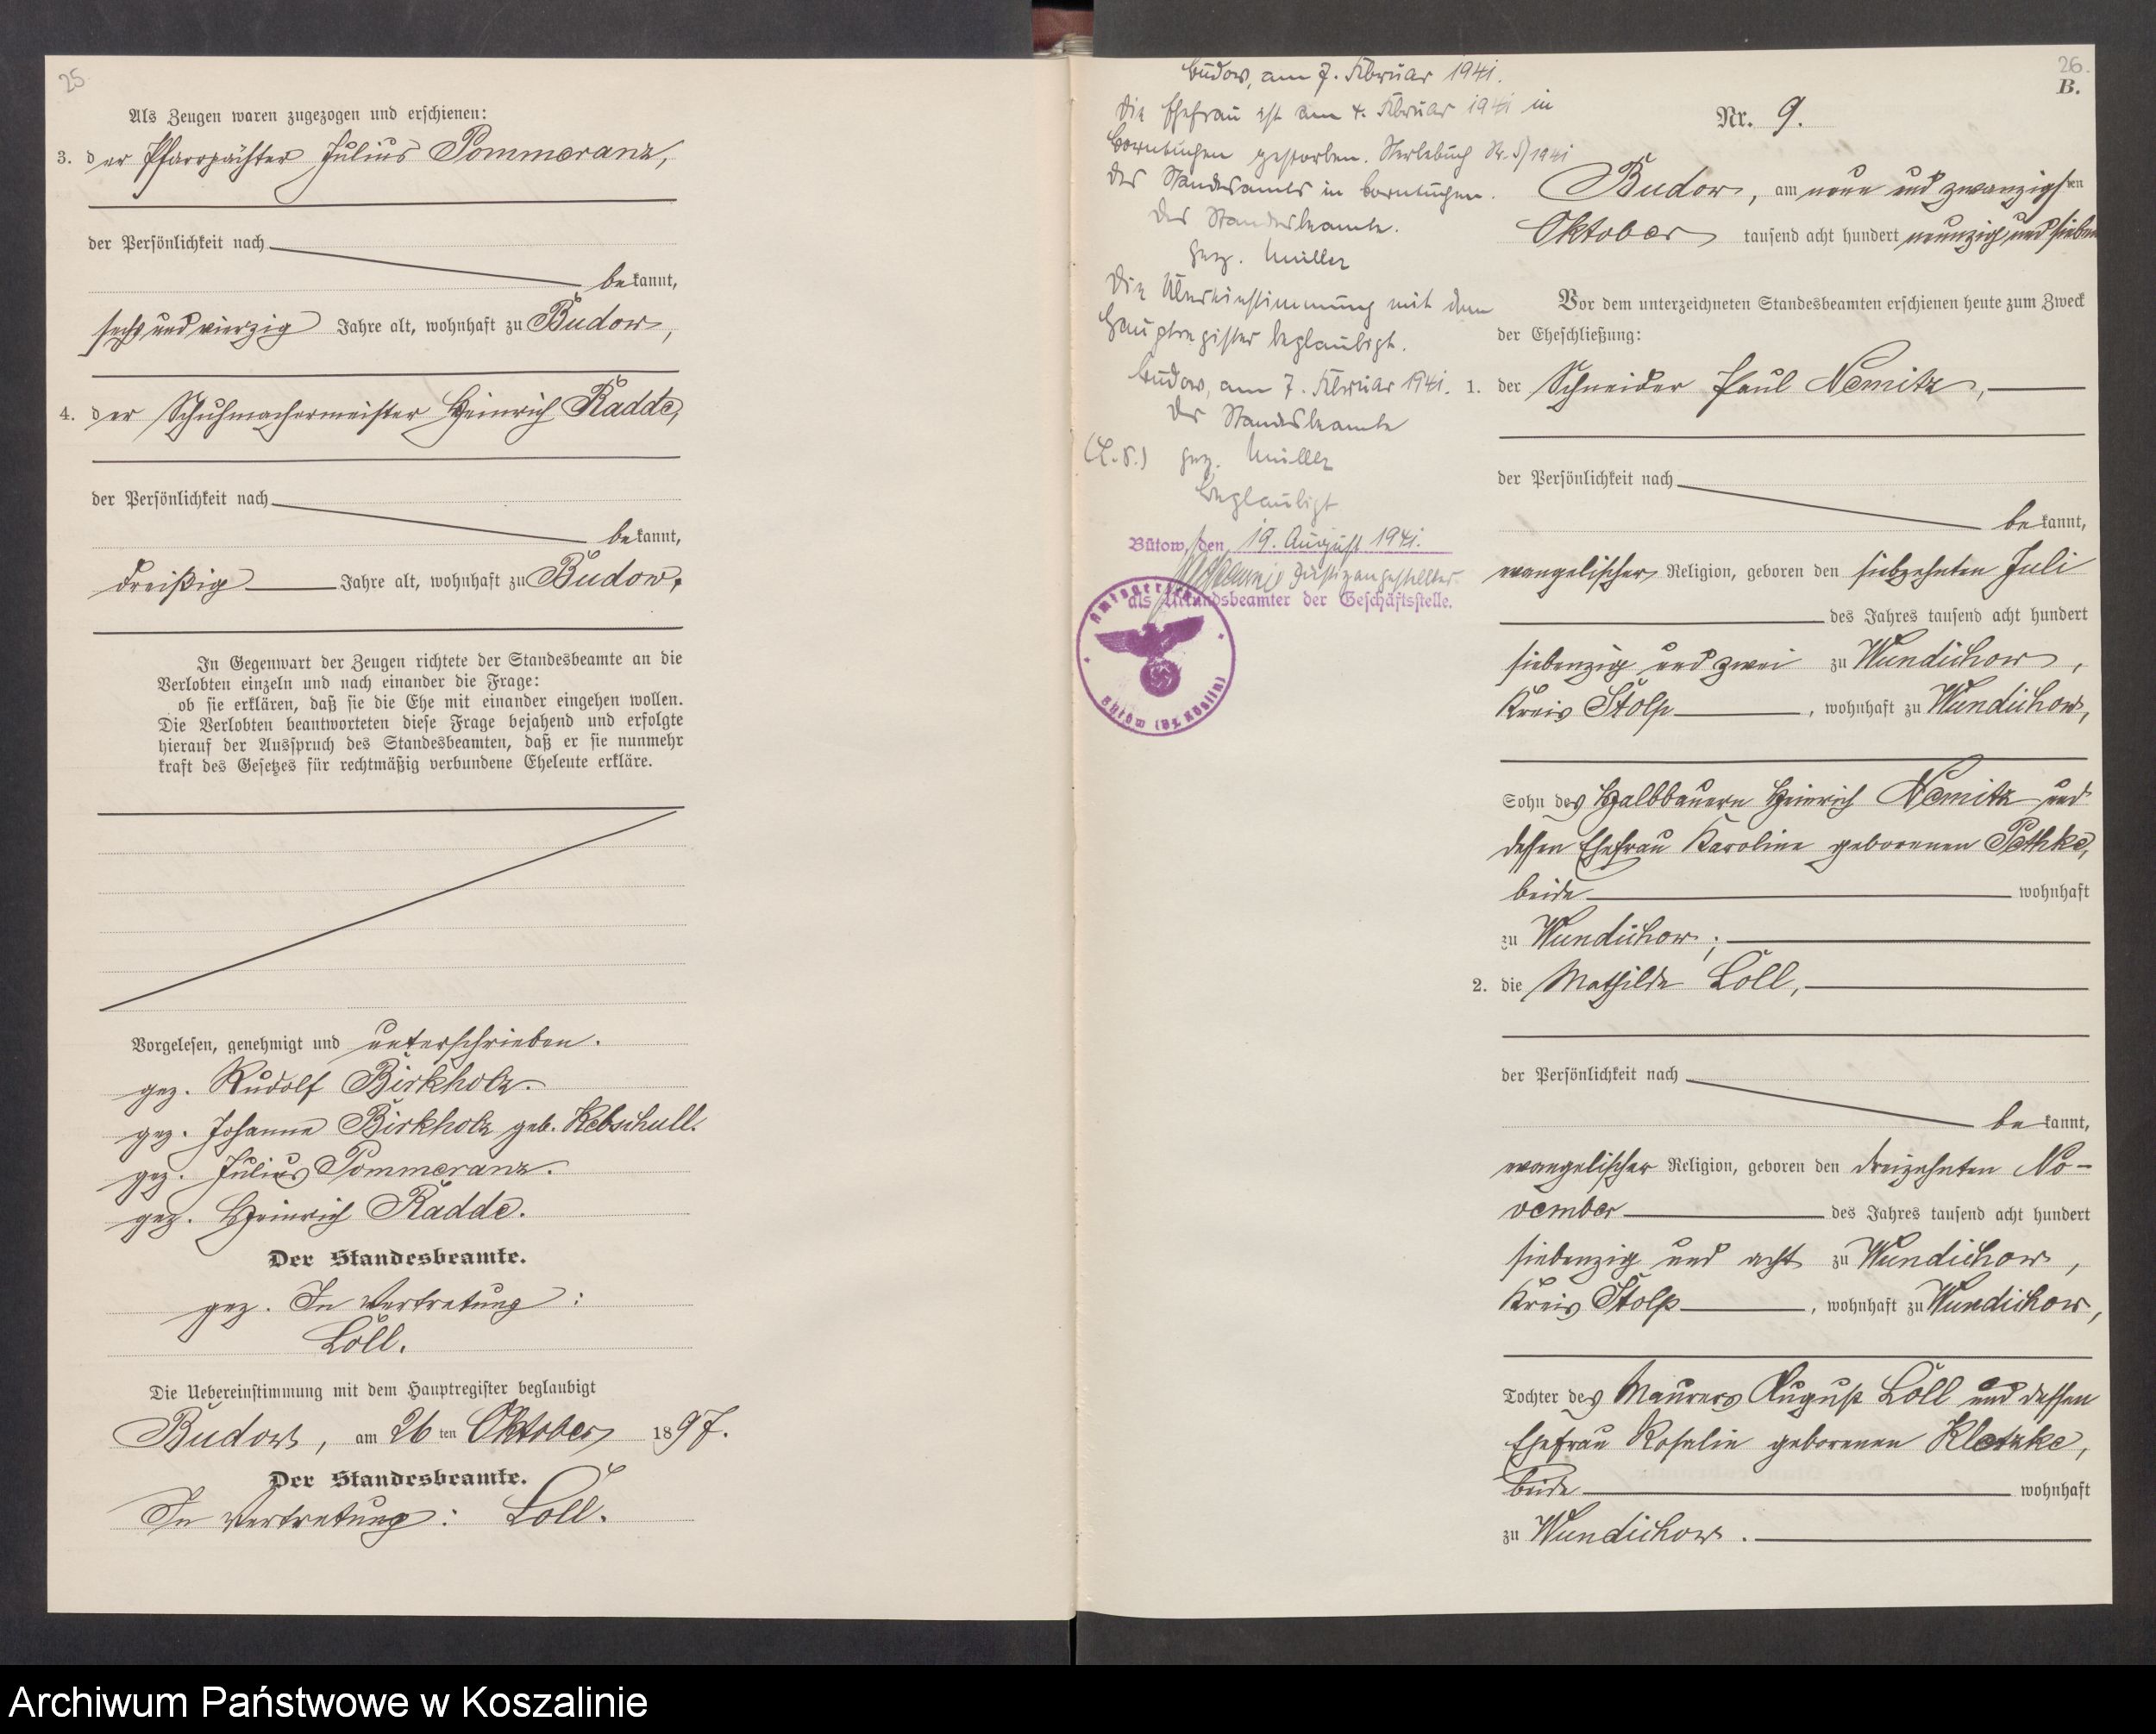 25.
Als Zeugen waren zugezogen und erschienen:
3. der Pfarrpächter Julius Pommeranz,
der Persönlichkeit nach
bekannt,
sechs und vierzig Jahre alt, wohnhaft zu Budow,
4. der Schuhmachermeister Heinrich Radde,
der Persönlichkeit nach
bekannt,
dreißig Jahre alt, wohnhaft zu Budow.
In Gegenwart der Zeugen richtete der Standesbeamte an die
Verlobten einzeln und nach einander die Frage:
ob sie erklären, daß sie die Ehe mit einander eingehen wollen.
Die Verlobten beantworteten diese Frage bejahend und erfolgte
hierauf der Ausspruch des Standesbeamten, daß er sie nunmehr
kraft des Gesetzes für rechtmäßig verbundene Eheleute erkläre.
Vorgelesen, genehmigt und unterschrieben.
gez. Rudolf Birkholz.
gez. Johanne Birkholz geb. Kebschull.
gez. Julius Pommeranz.
gez. Heinrich Radde.
Der Standesbeamte.
gez. In Vertretung:
Loll.
Die Uebereinstimmung mit dem Hauptregister beglaubigt
Budow, am 26ten Oktober 1897.
Der Standesbeamte.
In Vertretung: Loll.
Budow, am 7. Februar 1941.
Die Ehefrau ist am 4. Februar 1941 in
Borntuchen gestorben. Sterbebuch Nr. 5/1941
des Standesamts in Borntuchen.
Der Standesbeamte.
gez. Müller
Die Übereinstimmung mit dem
Hauptregister beglaubigt.
Budow, am 7. Februar 1941.
Der Standesbeamte
(L.S.) gez. Müller
Beglaubigt
Bütow, den 19. August 1941.
Justizangestellter
als Urkundsbeamter der Geschäftsstelle.
Amtsgericht
Bütow (Bz. Köslin)
26.
B.
Nr. 9.
Budow, am neun und zwanzigsten
Oktober tausend acht hundert neunzig und sieben
Vor dem unterzeichneten Standesbeamten erschienen heute zum Zweck
der Eheschließung:
1. der Schneider Paul Nemitz,
der Persönlichkeit nach
bekannt,
evangelischer Religion, geboren den siebzehnten Juli
des Jahres tausend acht hundert
siebenzig und zwei zu Wundichow,
Kreis Stolp, wohnhaft zu Wundichow,
Sohn des Halbbauern Heinrich Nemitz und
dessen Ehefrau Karoline geborenen Pethke,
beide wohnhaft
zu Wundichow;
2. die Mathilde Loll,
der Persönlichkeit nach
bekannt,
evangelischer Religion, geboren den dreizehnten No-
vember des Jahres tausend acht hundert
siebenzig und acht zu Wundichow,
Kreis Stolp, wohnhaft zu Wundichow,
Tochter des Maurers August Loll und dessen
Ehefrau Rosalie geborenen Klotzke,
beide wohnhaft
zu Wundichow.
Archiwum Państwowe w Koszalinie